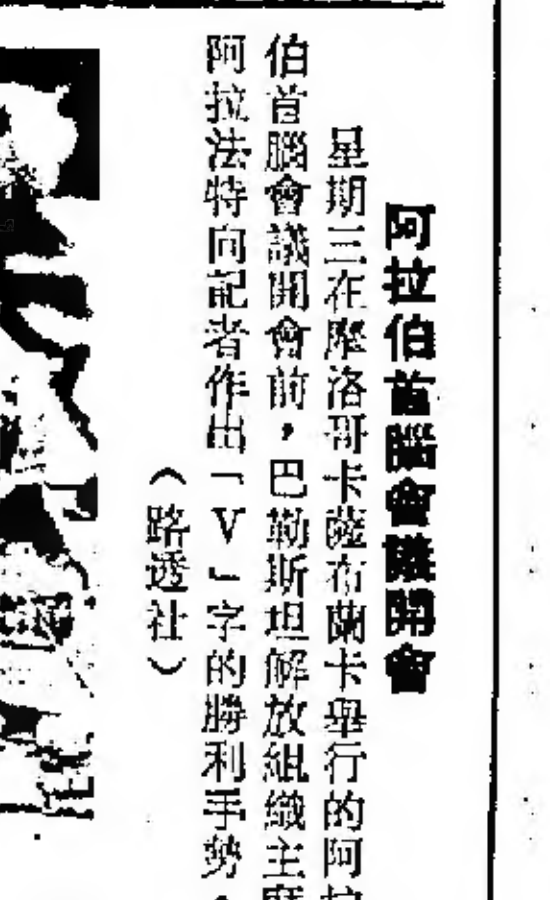 阿拉伯首腦會議開會
星期三在摩洛哥卡薩布蘭卡舉行的阿拉
伯首腦會議開會前，巴勒斯坦解放組織主席
阿拉法特向記者作出「V」字的勝利手勢。
（路透社）